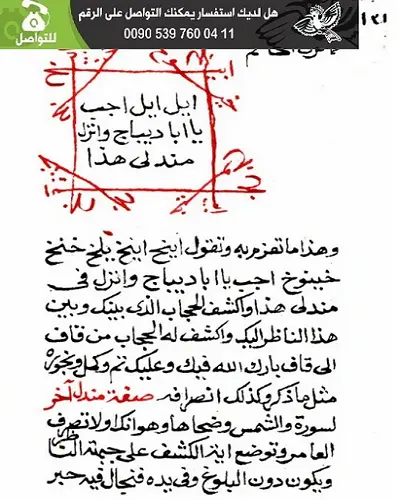 هل لديك استفسار يمكنك التواصل على الرقم
0090 539 760 04 11
للتواصل
ايل ايل اجب
يا ابا ديباج وانزل
مندلى هذا
وهذا ما تعزم به وتقول اينخ اينخ يلخ خنخ
خيبنوخ اجب يا ابا ديباج وانزل في
مندلى هذا واكشف الحجاب الذى بينك وبين
هذا الناظر اليك واكشف له الحجاب من قاف
الى قاف بارك الله فيك وعليك تم وكمل وبخوره
مثل ما ذكر وكذلك انصرافه صفة مندل آخر
لسورة والشمس وضحاها وهو انك اولا تصرف
العامر وتوضع اية الكشف على جبهة الناظر
ويكون دون البلوغ وفى يده فنجال فيه حبر